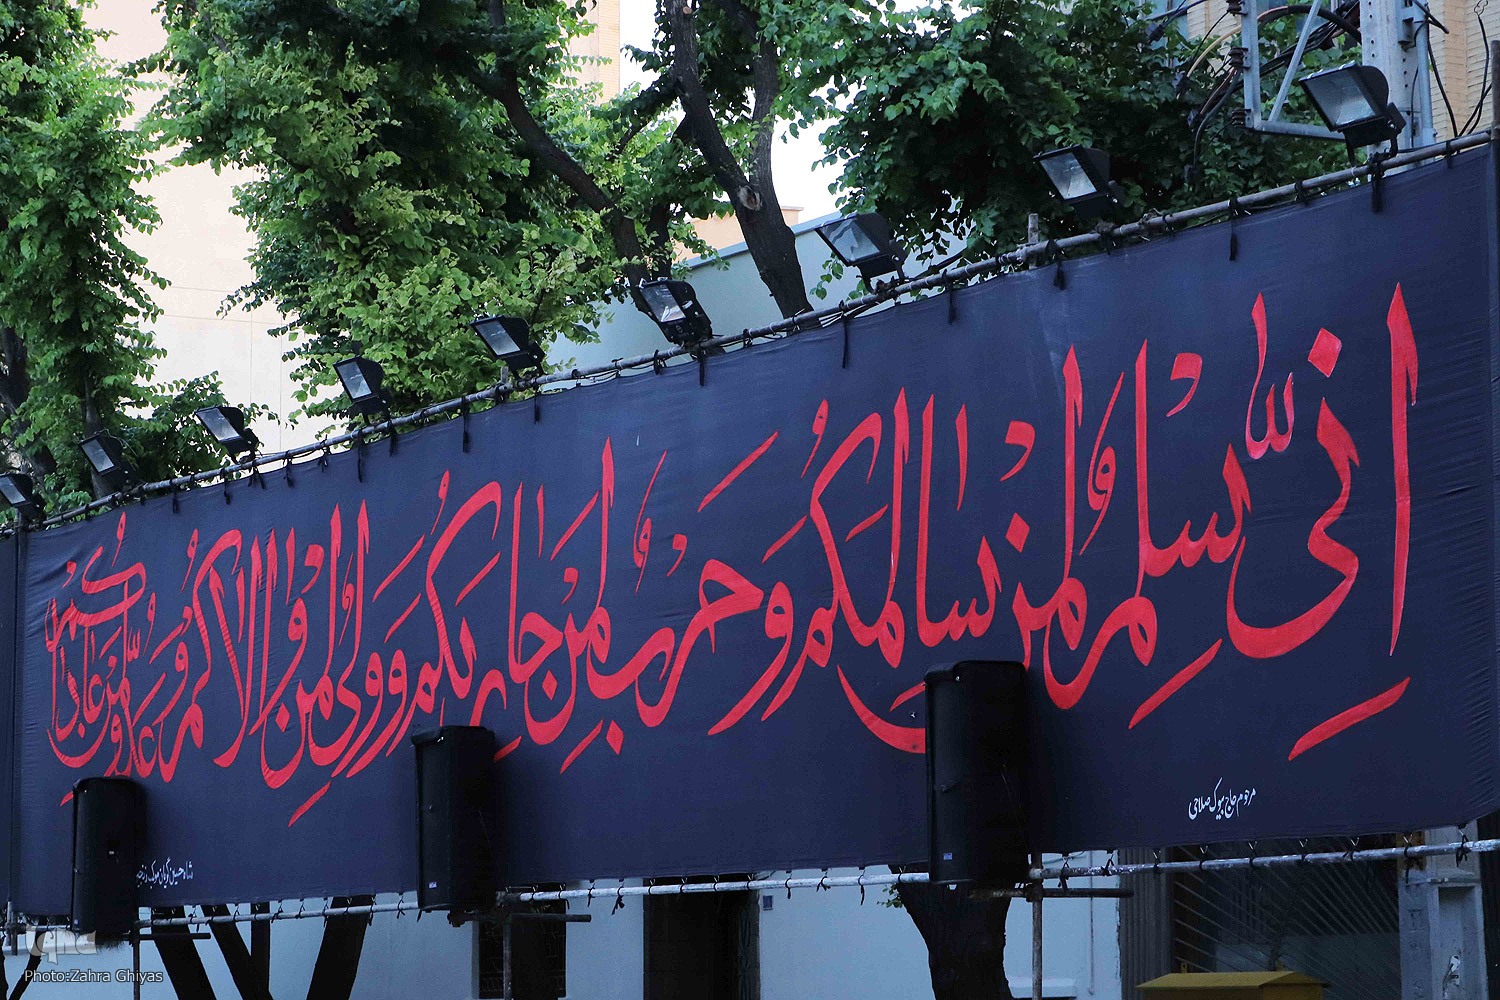 اِنّی سِلمٌ لِمَن سالَمَکُم وَ حَربٌ لِمَن حارَبَکُم وَ وَلیٌّ لِمَن والاکُم وَ عَدُوٌّ لِمَن عاداکُم
مرحوم حاج بیوک صلاحی
شاه حسین گویان
iqna
Photo:Zahra Ghiyas